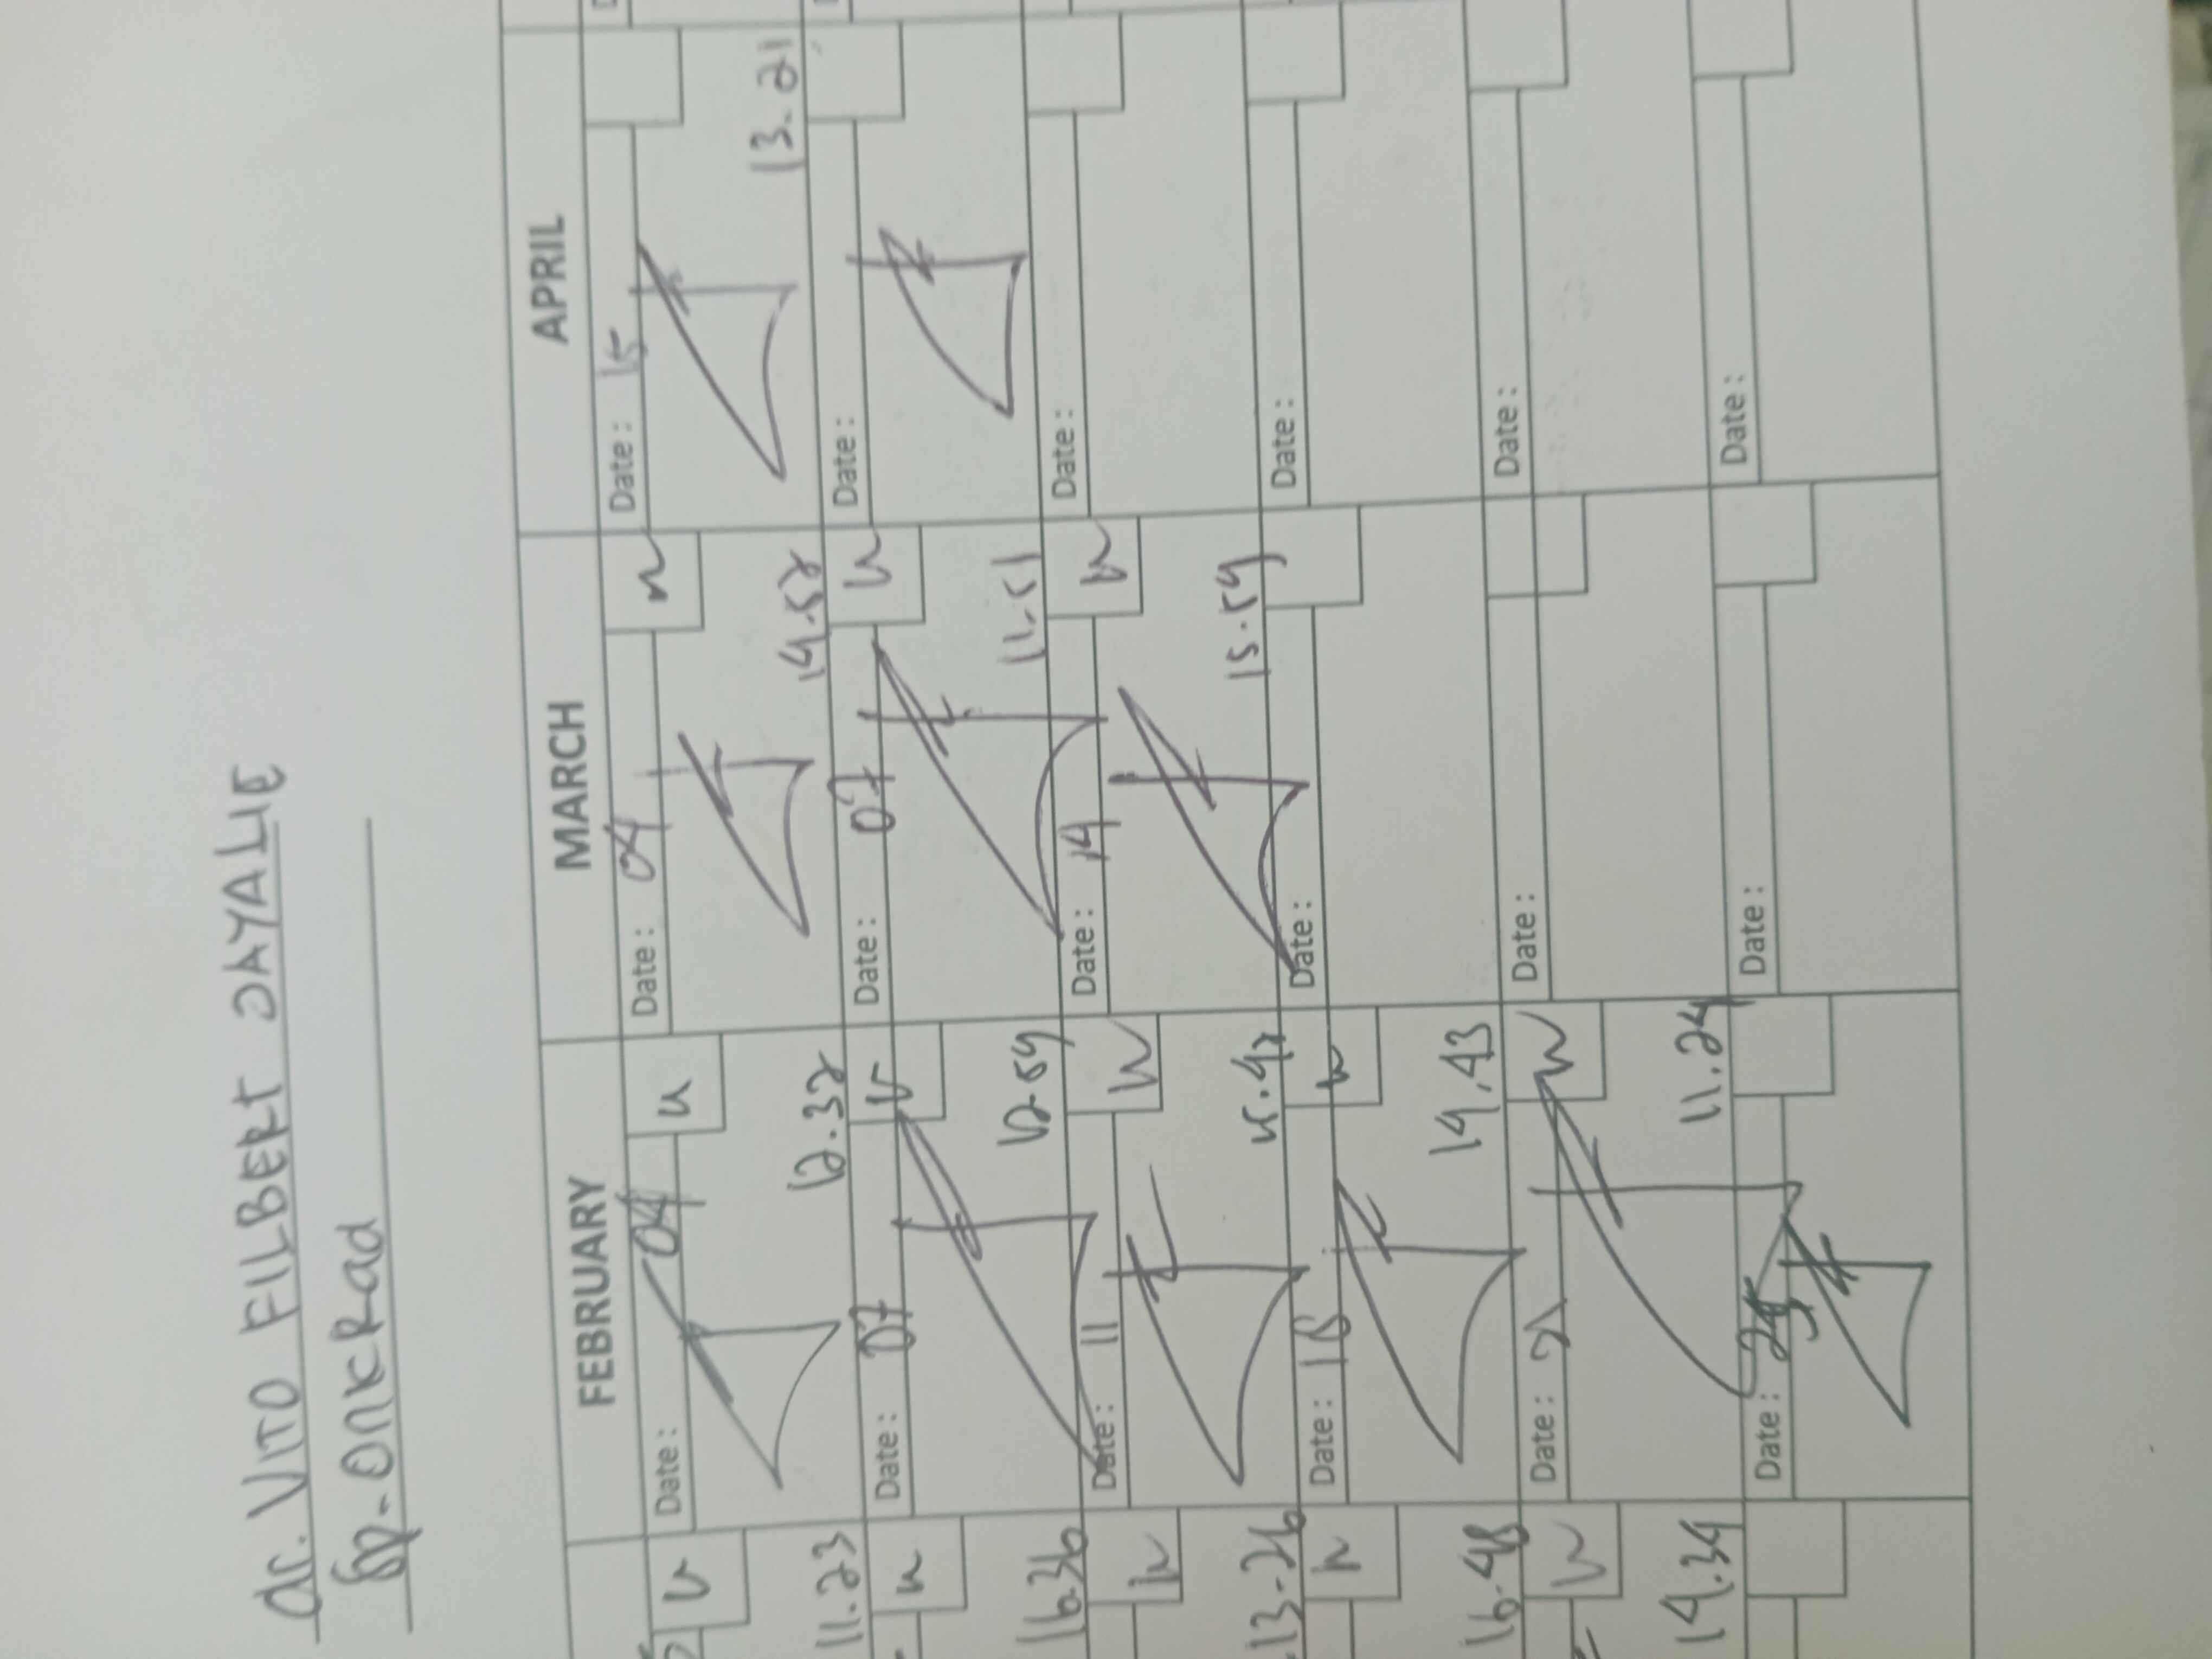 dr. VITO FILBERT JAYALIE
Sp. OnkRad
FEBRUARY MARCH APRIL
Date: 04 Date: 04 Date: 15
11.23 12.32 14.52 13.21
Date: 07 Date: 07 Date:
16.36 12.59 11.51
Date: 11 Date: 14 Date:
13-26 15.59
Date: 18 Date: Date:
16.48 14.43
Date: 21 Date: Date:
14.34 11.24
Date: 25 Date: Date: